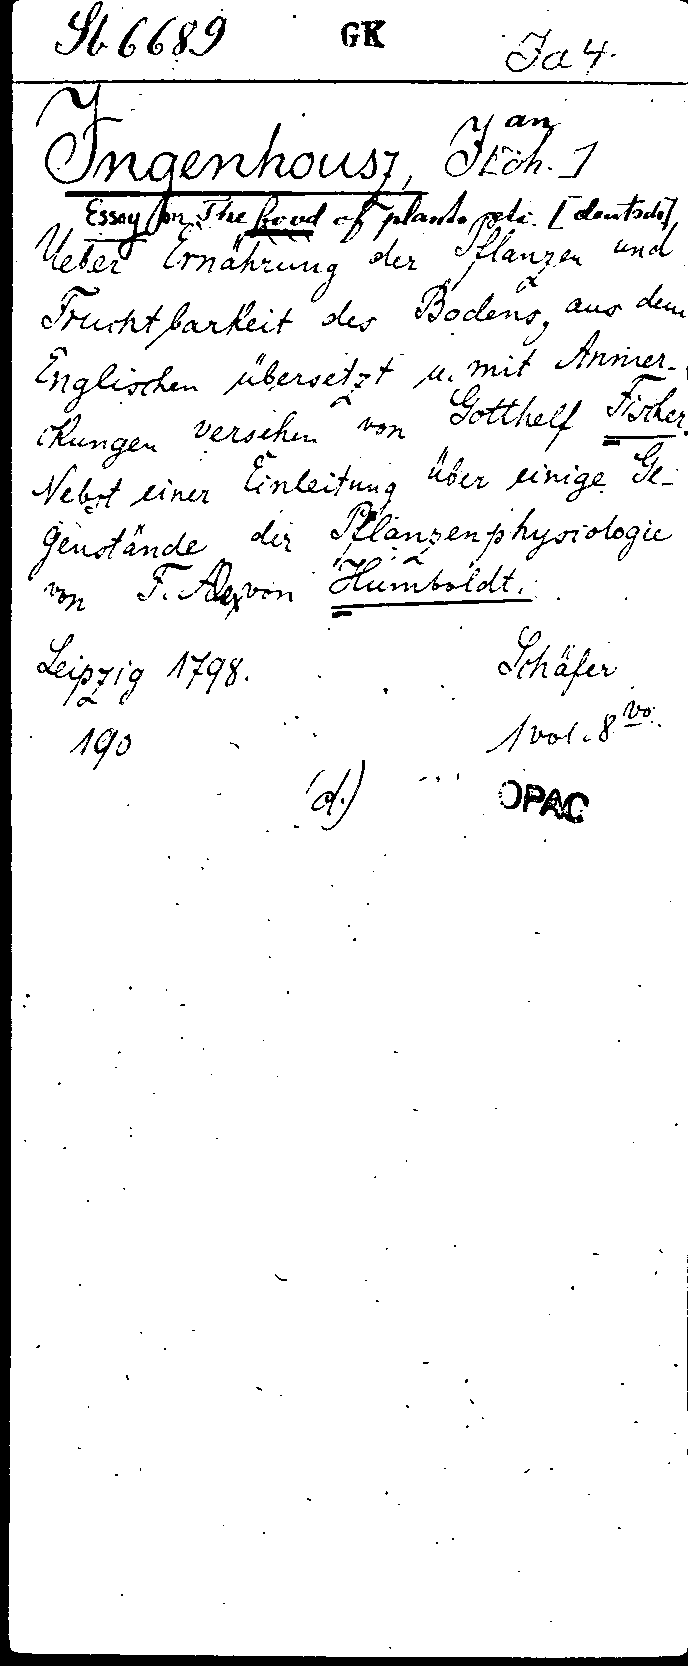 St 6689 GK Ja 4.
Jan
Ingenhousz, Joh. ]
Essay on The food of plants etc. [deutsch]
Ueber Ernährung der Pflanzen und
Fruchtbarkeit des Bodens, aus dem
Englischen übersetzt u. mit Anmer-
ckungen versehen von Gotthelf Fischer.
Nebst einer Einleitung über einige Ge-
genstände der Pflanzenphysiologie
von F. Alex von Humboldt.
Leipzig 1798. Schäfer
190 1 vol. 8vo.
(d.) OPAC